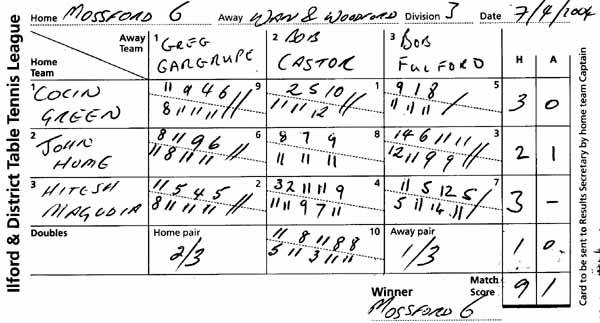 Ilford & District Table Tennis League
Home MOSSFORD 6 Away WAN & WOODFORD Division 3 Date 7/4/2004
Away Team 1 GREG GARGRUPE 2 BOB CASTOR 3 BOB FULFORD H A
Home Team
1 COLIN GREEN 9 1 5 3 0
11 9 4 6 // 2 5 10 / 9 1 8
8 11 11 11 11 11 12 // 11 11 11 /
2 JOHN HOME 6 8 3 2 1
8 11 9 6 8 7 9 14 6 11 11
11 8 11 11 // 11 11 11 12 11 9 9 //
3 HITESH MAGUDIA 2 4 7 3 -
11 5 4 5 3 2 11 11 9 11 5 12 5
8 11 11 11 // 11 11 9 7 11 5 11 14 11 /
Doubles Home pair 2/3 10 Away pair 1/3 1 0
11 8 11 8 8
5 11 3 11 11
Winner MOSSFORD 6 Match Score 9 1
Card to be sent to Results Secretary by home team Captain